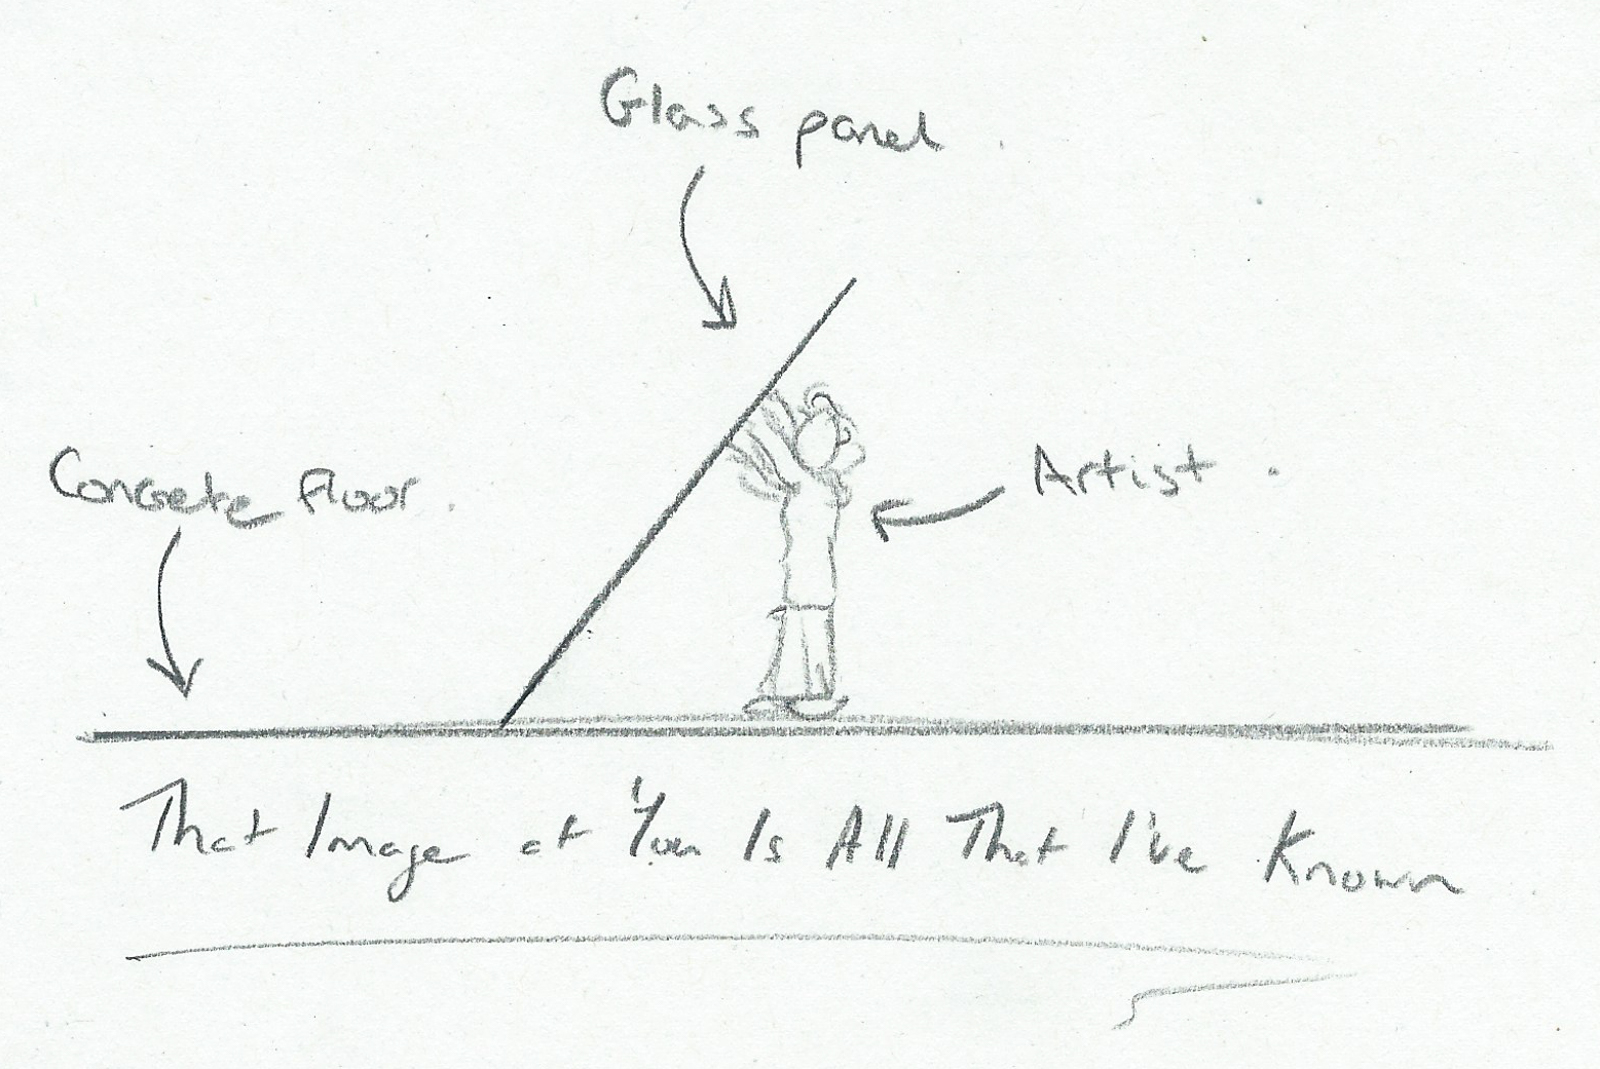 Glass panel.
Concrete floor.
Artist.
That Image of You Is All That I've Known